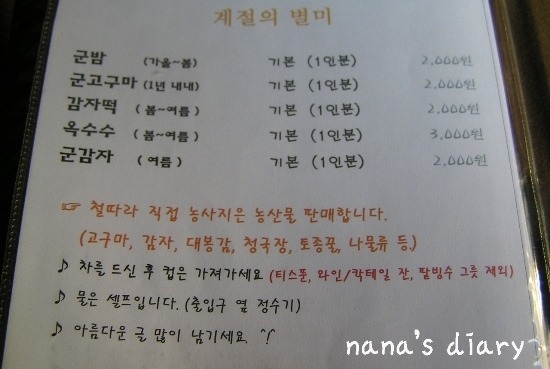 계절의 별미
군밤 (가을~봄) 기본 (1인분) 2,000원
군고구마 (1년 내내) 기본 (1인분) 2,000원
감자떡 (봄~여름) 기본 (1인분) 2,000원
옥수수 (봄~여름) 기본 (1인분) 3,000원
군감자 (여름) 기본 (1인분) 2,000원
☞ 철따라 직접 농사지은 농산물 판매합니다.
(고구마, 감자, 대봉감, 청국장, 토종꿀, 나물류 등.)
♪ 차를 드신 후 컵은 가져가세요 (티스푼, 와인/칵테일 잔, 팥빙수 그릇 제외)
♪ 물은 셀프입니다. (출입구 옆 정수기)
♪ 아름다운 글 많이 남기세요. ^!^
nana's diary